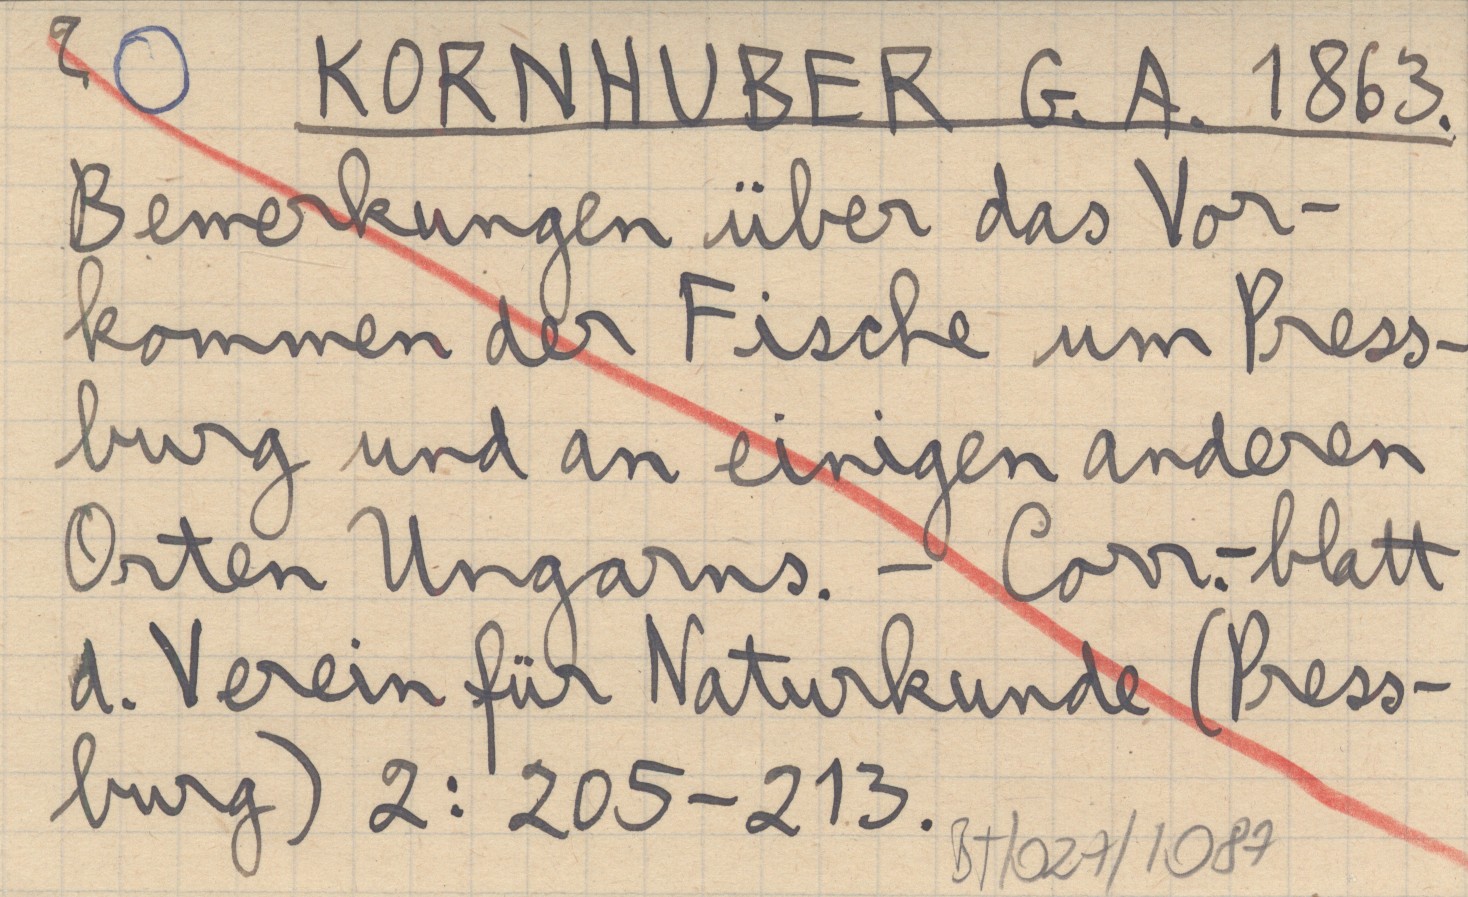 KORNHUBER G. A. 1863.
Bemerkungen über das Vor-
kommen der Fische um Press-
burg und an einigen anderen
Orten Ungarns. - Corr.-blatt
d. Verein für Naturkunde (Press-
burg) 2: 205-213.
Bt/027/1087